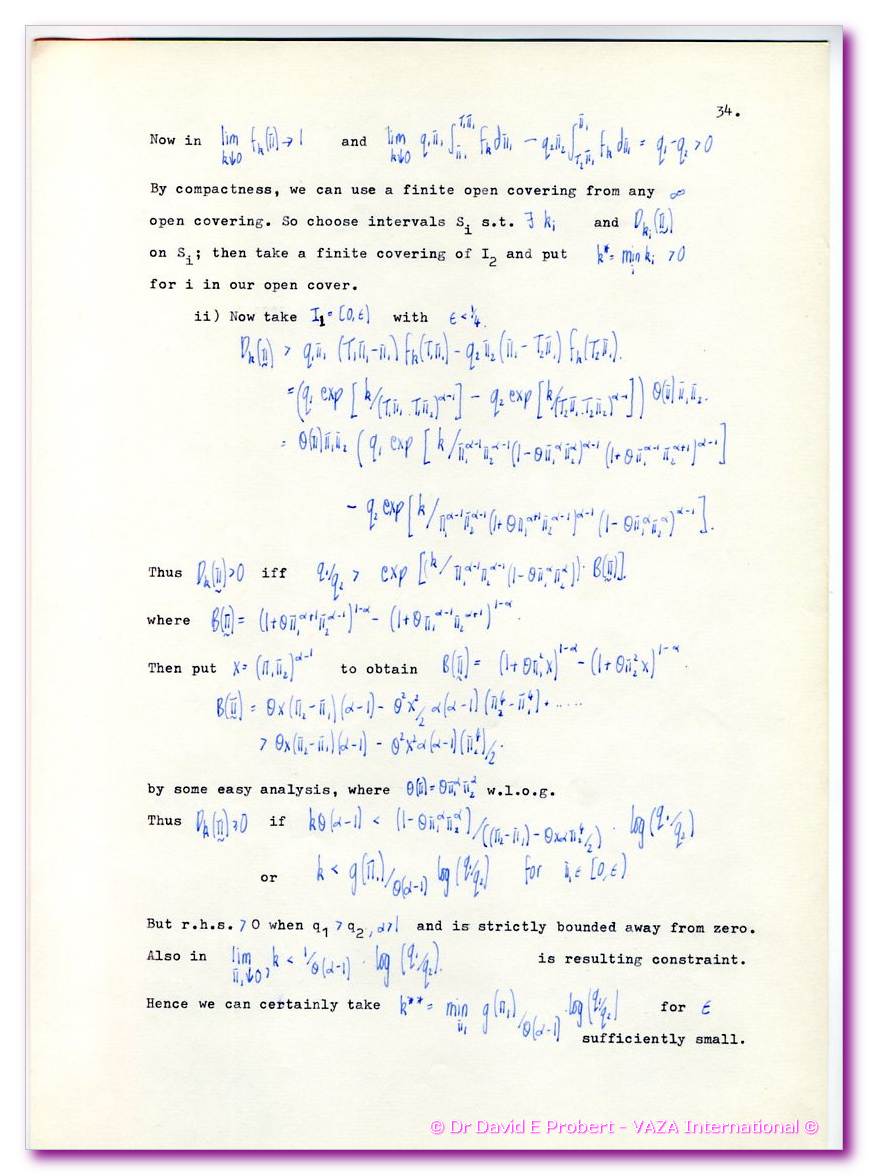 34.
Now in lim k↓0 f_k(π̃) → 1 and lim k↓0 q₁π̃₁ ∫_{π̃₁}^{T₁π̃₁} f_k dπ̃₁ − q₂π̃₂ ∫_{T₂π̃₁}^{π̃₁} f_k dπ̃₁ = q₁−q₂ > 0
By compactness, we can use a finite open covering from any ∞
open covering. So choose intervals S_i s.t. ∃ k_i and D_{k_i}(π̃)
on S_i; then take a finite covering of I₂ and put k* = min_i k_i > 0
for i in our open cover.
ii) Now take I₁ = [0,ε) with ε < ¼.
D_k(π̃) > q₁π̃₁ (T₁π̃₁−π̃₁) f_k(T₁π̃₁) − q₂π̃₂ (π̃₁−T₂π̃₁) f_k(T₂π̃₁).
= (q₁ exp [k/(T₁π̃₁.T₁π̃₂)^{α−1}] − q₂ exp [k/(T₂π̃₁.T₂π̃₂)^{α−1}]) θ(π̃) π̃₁π̃₂.
= θ(π̃)π̃₁π̃₂ (q₁ exp [k/π̃₁^{α−1}π̃₂^{α−1}(1−θπ̃₁^απ̃₂^α)^{α−1} (1+θπ̃₁^{α−1}π̃₂^{α+1})^{α−1}]
− q₂ exp [k/π̃₁^{α−1}π̃₂^{α−1}(1+θπ̃₁^{α+1}π̃₂^{α−1})^{α−1} (1−θπ̃₁^απ̃₂^α)^{α−1}].
Thus D_k(π̃) > 0 iff q₁/q₂ > exp [(k/π̃₁^{α−1}π̃₂^{α−1}(1−θπ̃₁^απ̃₂^α)). B(π̃)].
where B(π̃) = (1+θπ̃₁^{α+1}π̃₂^{α−1})^{1−α} − (1+θπ̃₁^{α−1}π̃₂^{α+1})^{1−α}.
Then put x = (π̃₁π̃₂)^{α−1} to obtain B(π̃) = (1+θπ̃₁²x)^{1−α} − (1+θπ̃₂²x)^{1−α}.
B(π̃) = θx(π̃₂−π̃₁)(α−1) − θ²x²/2 α(α−1)(π̃₂⁴−π̃₁⁴) + .....
> θx(π̃₂−π̃₁)(α−1) − θ²x²α(α−1)(π̃₂⁴)/2.
by some easy analysis, where θ(π̃) = θπ̃₁^απ̃₂^α w.l.o.g.
Thus D_k(π̃) ≥ 0 if kθ(α−1) < (1−θπ̃₁^απ̃₂^α)/((π̃₂−π̃₁)−θxαπ̃₂⁴/2) . log(q₁/q₂)
or k < g(π̃₁)/θ(α−1) log(q₁/q₂) for π̃₁ ∈ [0,ε)
But r.h.s. > 0 when q₁ > q₂, α>1 and is strictly bounded away from zero.
Also in lim π̃₁↓0, k < 1/θ(α−1) . log(q₁/q₂). is resulting constraint.
Hence we can certainly take k** = min_{π̃₁} g(π̃₁)/θ(α−1) .log(q₁/q₂) for ε
sufficiently small.
© Dr David E Probert - VAZA International ©